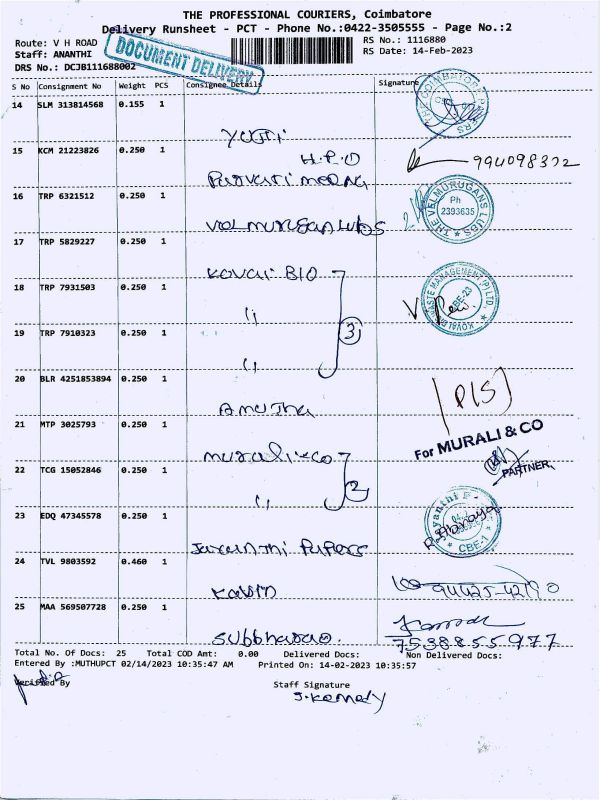 THE PROFESSIONAL COURIERS, Coimbatore
Delivery Runsheet - PCT - Phone No.:0422-3505555 - Page No.:2
Route: V H ROAD
Staff: ANANTHI
DRS No.: DCJB111688002
DOCUMENT DELIVERY
RS No.: 1116880
RS Date: 14-Feb-2023
S No Consignment No Weight PCS Consignee Details Signature
14 SLM 313814568 0.155 1
15 KCM 21223826 0.250 1
H.P.O
16 TRP 6321512 0.250 1
THE VELMURUGANS LUBS
Ph
2393635
17 TRP 5829227 0.250 1
Kovai BIO
18 TRP 7931503 0.250 1
"
3
19 TRP 7910323 0.250 1
"
20 BLR 4251853894 0.250 1
Amutha
P/S
21 MTP 3025793 0.250 1
murali-co
For MURALI & CO
PARTNER
22 TCG 15052846 0.250 1
"
2
23 EDQ 47345578 0.250 1
Jayanthi Papers
CBE-1
24 TVL 9803592 0.460 1
Kavin
25 MAA 569507728 0.250 1
Subbharao.
7538855977
Total No. Of Docs: 25 Total COD Amt: 0.00 Delivered Docs: Non Delivered Docs:
Entered By :MUTHUPCT 02/14/2023 10:35:47 AM Printed On: 14-02-2023 10:35:57
Verified By
Staff Signature
J. Kennedy